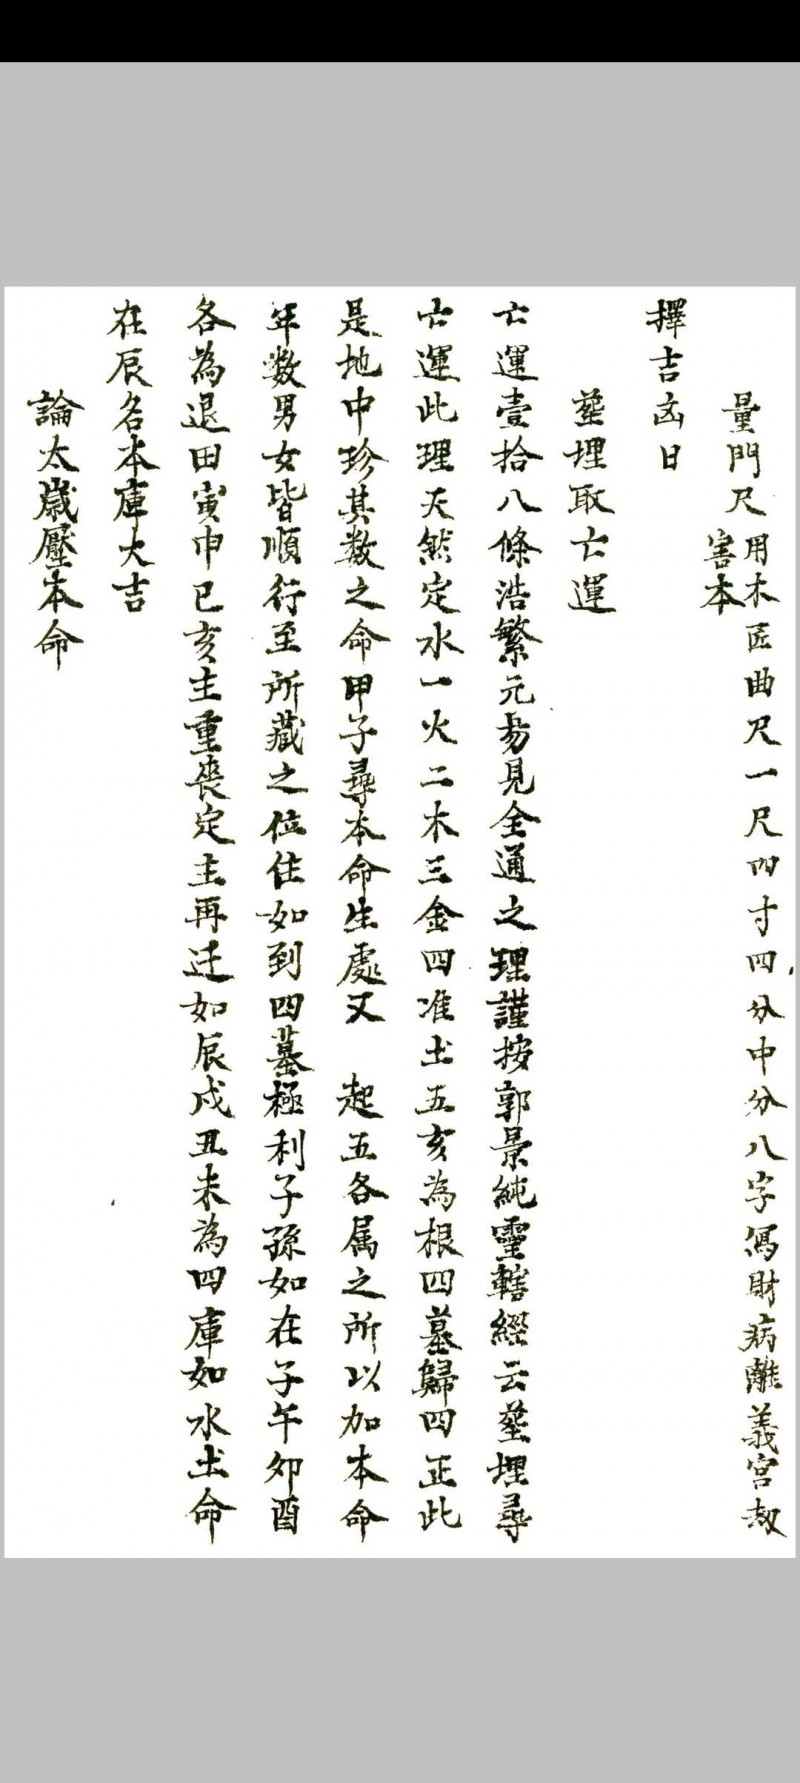 量門尺 用木匠曲尺一尺四寸四分中分八字寫財病離義官劫
害本
擇吉凶日
塟埋取亡運
亡運壹拾八條浩繁元易見全通之理謹按郭景純靈轄經云塟埋尋
亡運此理天然定水一火二木三金四准土五亥為根四墓歸四正此
是地中珍其数之命甲子尋本命生處又 起五各属之所以加本命
年数男女皆順行至所藏之位住如到四墓極利子孫如在子午卯酉
各為退田寅申巳亥主重喪定主再迁如辰戌丑未為四庫如水土命
在辰名本庫大吉
論太歲壓本命